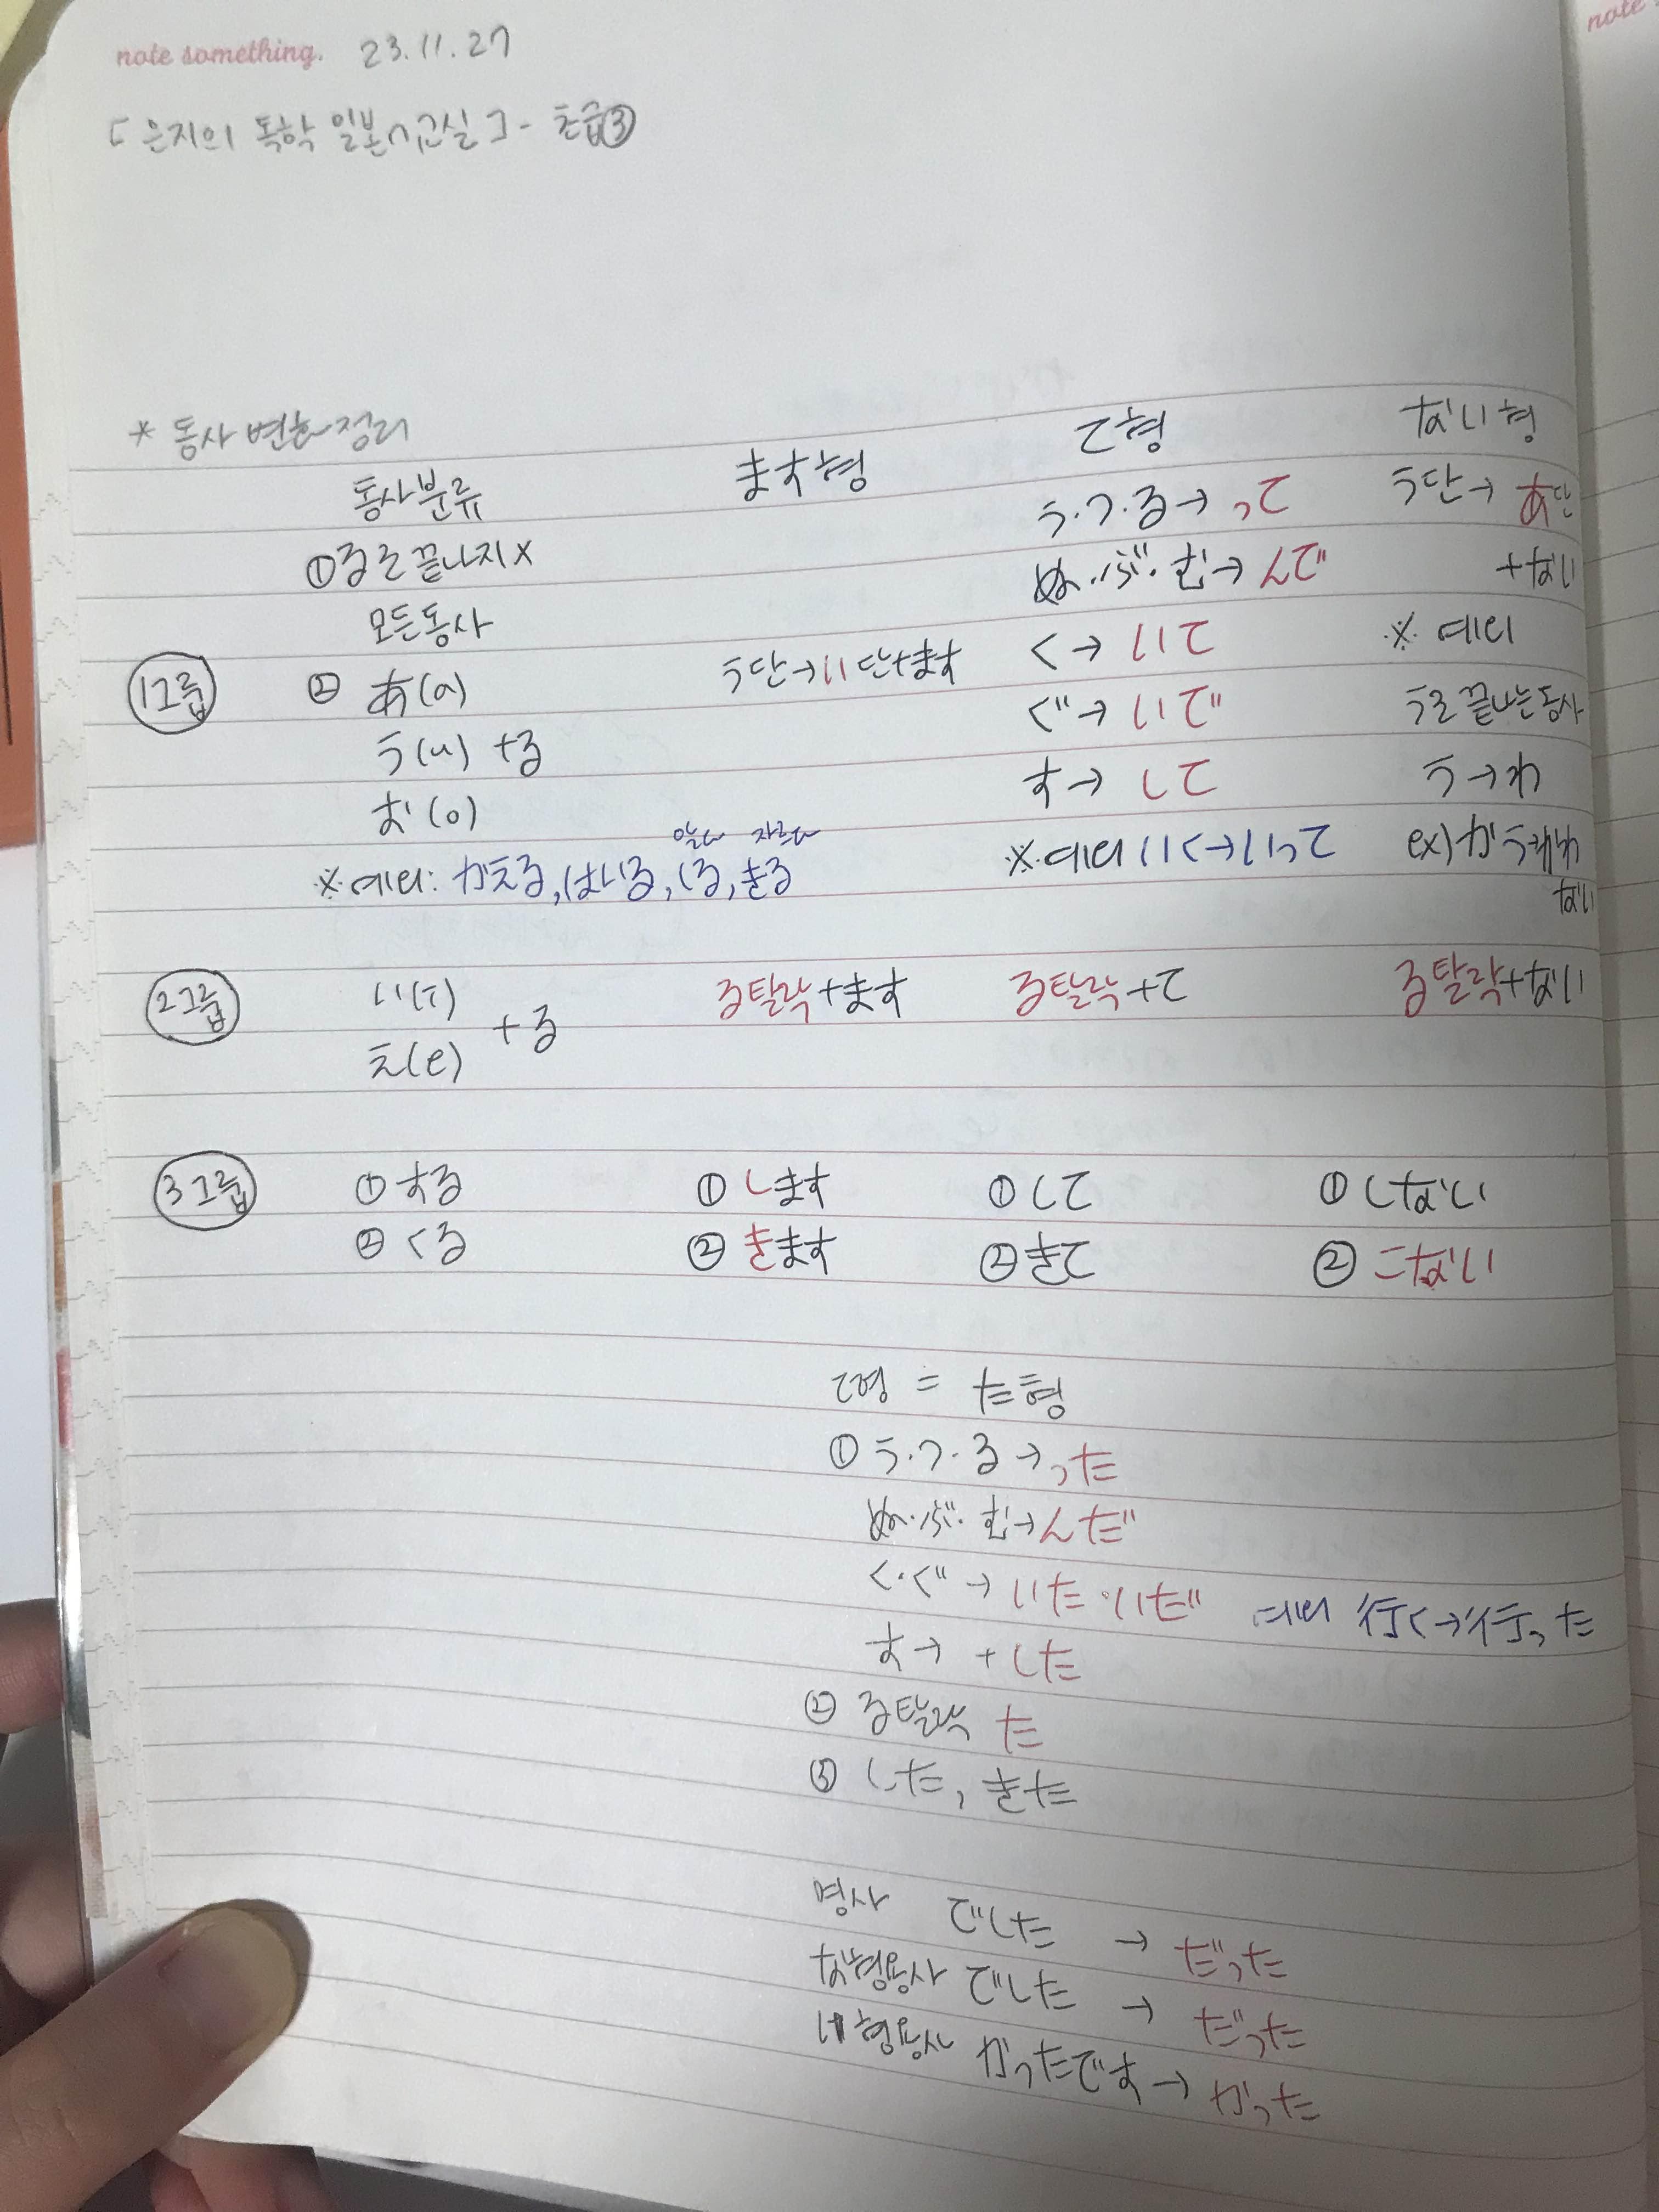 note something. 23.11.27
「은지의 독학 일본어교실」- 초급③
* 동사 변환 정리
동사분류 ます형 て형 ない형
①る로 끝나지 x う・つ・る→って う단→あ단
모든동사 ぬ・ぶ・む→んで +ない
1그룹 ② あ(a) う단→い단+ます く→いて ※ 예외
う(u) +る ぐ→いで う로 끝나는 동사
お(o) す→して う→わ
알다 자르다
※예외: かえる,はいる,しる,きる ※예외 いく→いって ex) かう→かわ
ない
2그룹 い(i) る탈락+ます る탈락+て る탈락+ない
え(e) +る
3그룹 ①する ①します ①して ①しない
②くる ②きます ②きて ②こない
て형 = た형
①う・つ・る→った
ぬ・ぶ・む→んだ
く・ぐ→いた・いだ 예외 行く→行った
す→+した
②る탈락 た
③した, きた
명사 でした → だった
な형용사 でした → だった
い형용사 かったです→かった
note